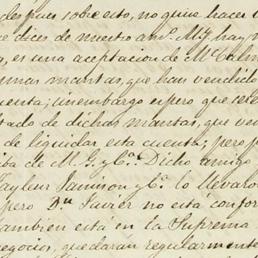 despues sobre esto, no quise hacer
e dices de nuestro am.º M. y hay
es una aceptacion de Mc
unas mantas, que han vendido
uenta; sinembargo espero que se le
ltado de dichas mantas, que ven
de liquidar esta cuenta; pero
iba de M. y C.ª Dicho amigo
Taylor Jamison y C.ª lo llevaro
pero Dn Javier no esta confor
tambien está en la Suprema
negocios, quedarán regularmente